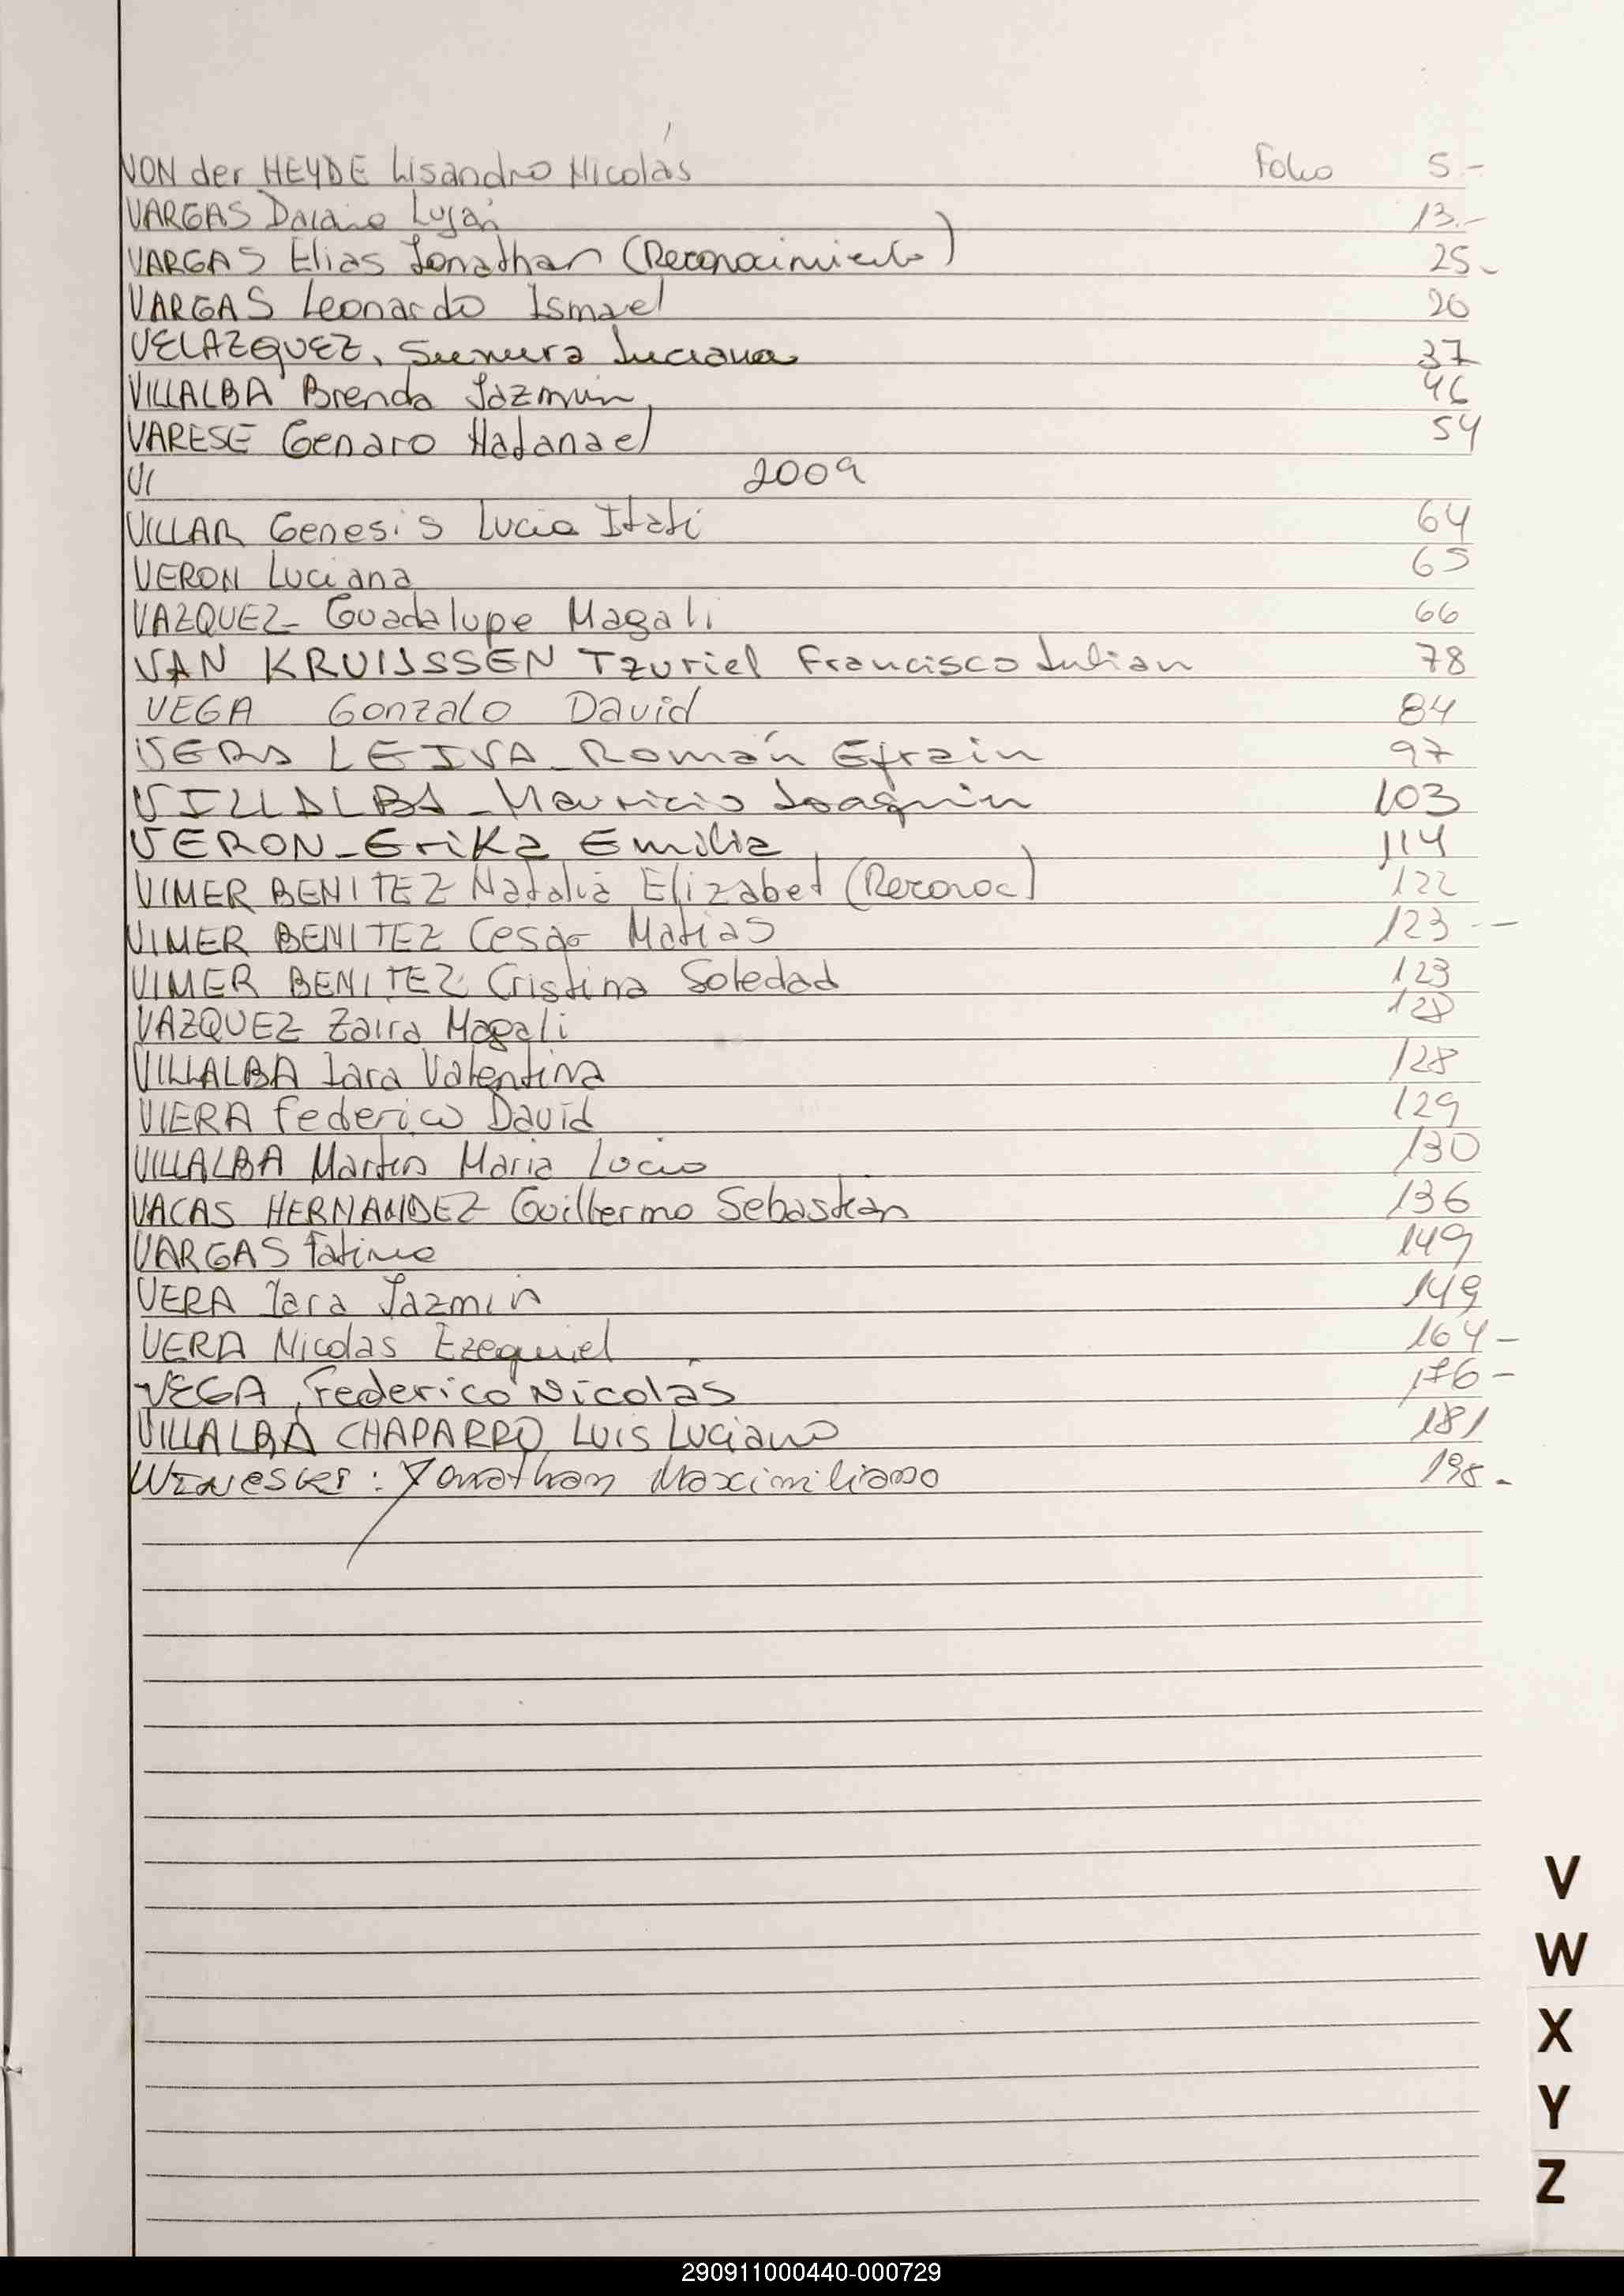 VON der HEYDE Lisandro Nicolás Folio 5.-
VARGAS Daiana Luján 13.-
VARGAS Elias Jonathan (Reconocimiento) 25-
VARGAS Leonardo Ismael 20
VELAZQUEZ, Luciana 37
VILLALBA Brenda Jazmin 46
VARESE Genaro Natanael 54
VI 2009
VILLAR Genesis Lucia Itati 64
VERON Luciana 65
VAZQUEZ- Guadalupe Magali 66
VAN KRUIJSSEN Tzuriel Francisco Julian 78
VEGA Gonzalo David 84
VERA LEIVA-Román Efrain 97
VILLALBA-Mauricio Joaquin 103
VERON-Erika Emilia 114
VIMER BENITEZ Natalia Elizabet (Reconoc) 122
VIMER BENITEZ Cesar Matias 123--
VIMER BENITEZ Cristina Soledad 123
VAZQUEZ Zaira Magali 128
VILLALBA Iara Valentina 128
VIERA Federico David 129
VILLALBA Martin Maria Lucio 130
VACAS HERNANDEZ Guillermo Sebastian 136
VARGAS Fatima 149
VERA Iara Jazmin 149
VERA Nicolas Ezequiel 164-
VEGA, Federico Nicolás 176-
VILLALBA CHAPARRO Luis Luciano 181
: Yonathan Maximiliano 198.
V
W
X
Y
Z
290911000440-000729